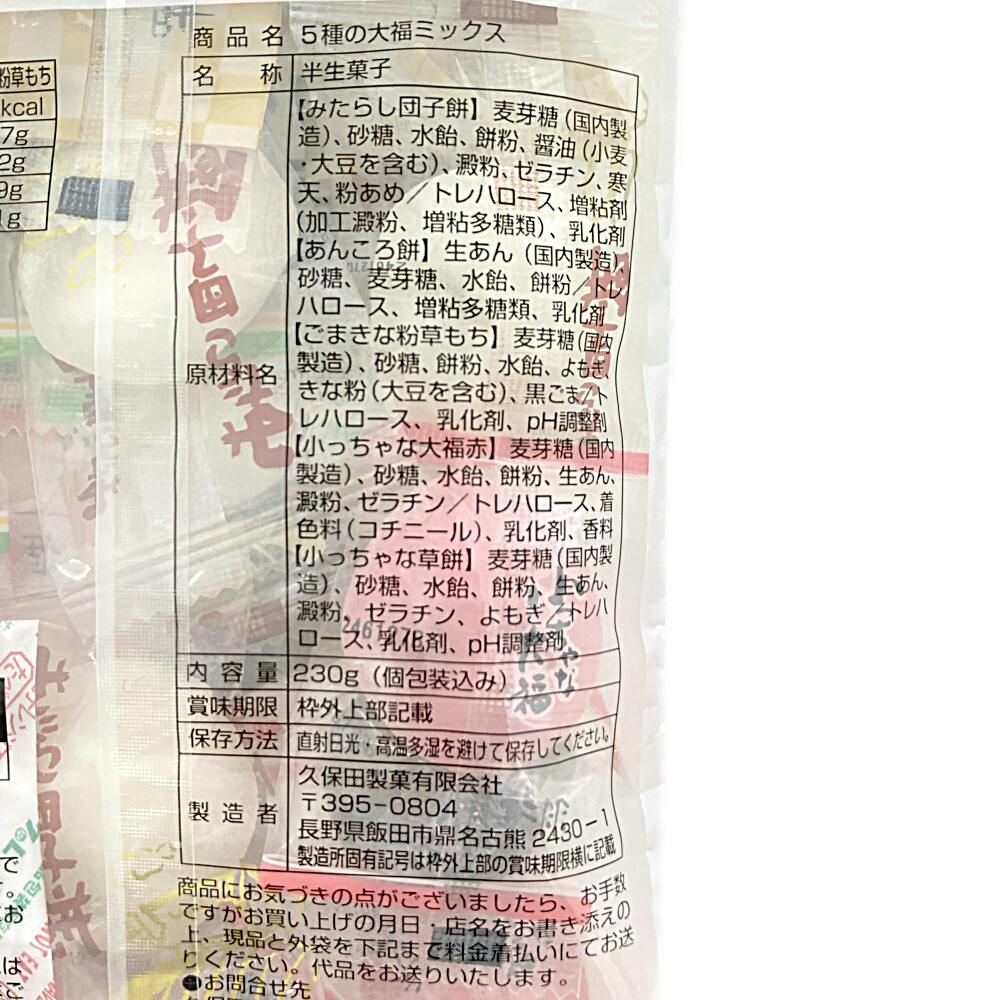 商品名 5種の大福ミックス
名称 半生菓子
原材料名
【みたらし団子餅】麦芽糖(国内製
造)、砂糖、水飴、餅粉、醤油(小麦
・大豆を含む)、澱粉、ゼラチン、寒
天、粉あめ/トレハロース、増粘剤
(加工澱粉、増粘多糖類)、乳化剤
【あんころ餅】生あん(国内製造)、
砂糖、麦芽糖、水飴、餅粉/トレ
ハロース、増粘多糖類、乳化剤
【ごまきな粉草もち】麦芽糖(国内
製造)、砂糖、餅粉、水飴、よもぎ、
きな粉(大豆を含む)、黒ごま/ト
レハロース、乳化剤、pH調整剤
【小っちゃな大福赤】麦芽糖(国内
製造)、砂糖、水飴、餅粉、生あん、
澱粉、ゼラチン/トレハロース、着
色料(コチニール)、乳化剤、香料
【小っちゃな草餅】麦芽糖(国内製
造)、砂糖、水飴、餅粉、生あん、
澱粉、ゼラチン、よもぎ/トレハ
ロース、乳化剤、pH調整剤
内容量 230g(個包装込み)
賞味期限 枠外上部記載
保存方法 直射日光・高温多湿を避けて保存してください。
製造者
久保田製菓有限会社
〒395-0804
長野県飯田市鼎名古熊2430-1
製造所固有記号は枠外上部の賞味期限横に記載
商品にお気づきの点がございましたら、お手数
ですがお買い上げの月日 店名をお書き添えの
上、現品と外袋を下記まで料金着払いにてお送
りください。代品をお送りいたします。
●お問合せ先
粉草もち
kcal
7g
2g
9g
1g
小っちゃな
大福